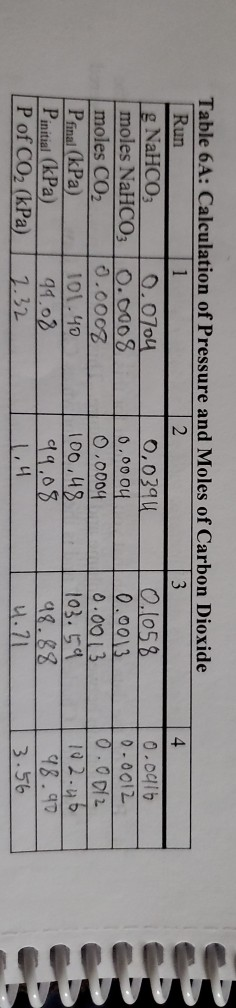 Table 6A: Calculation of Pressure and Moles of Carbon Dioxide
Run 1 2 3 4
g NaHCO₃ 0.0704 0.0394 0.1058 0.0916
moles NaHCO₃ 0.0008 0.0004 0.0013 0.0012
moles CO₂ 0.0008 0.0004 0.0013 0.0012
P final (kPa) 101.40 100.48 103.59 102.46
P initial (kPa) 99.08 99.08 98.88 98.90
P of CO₂ (kPa) 2.32 1.4 4.71 3.56